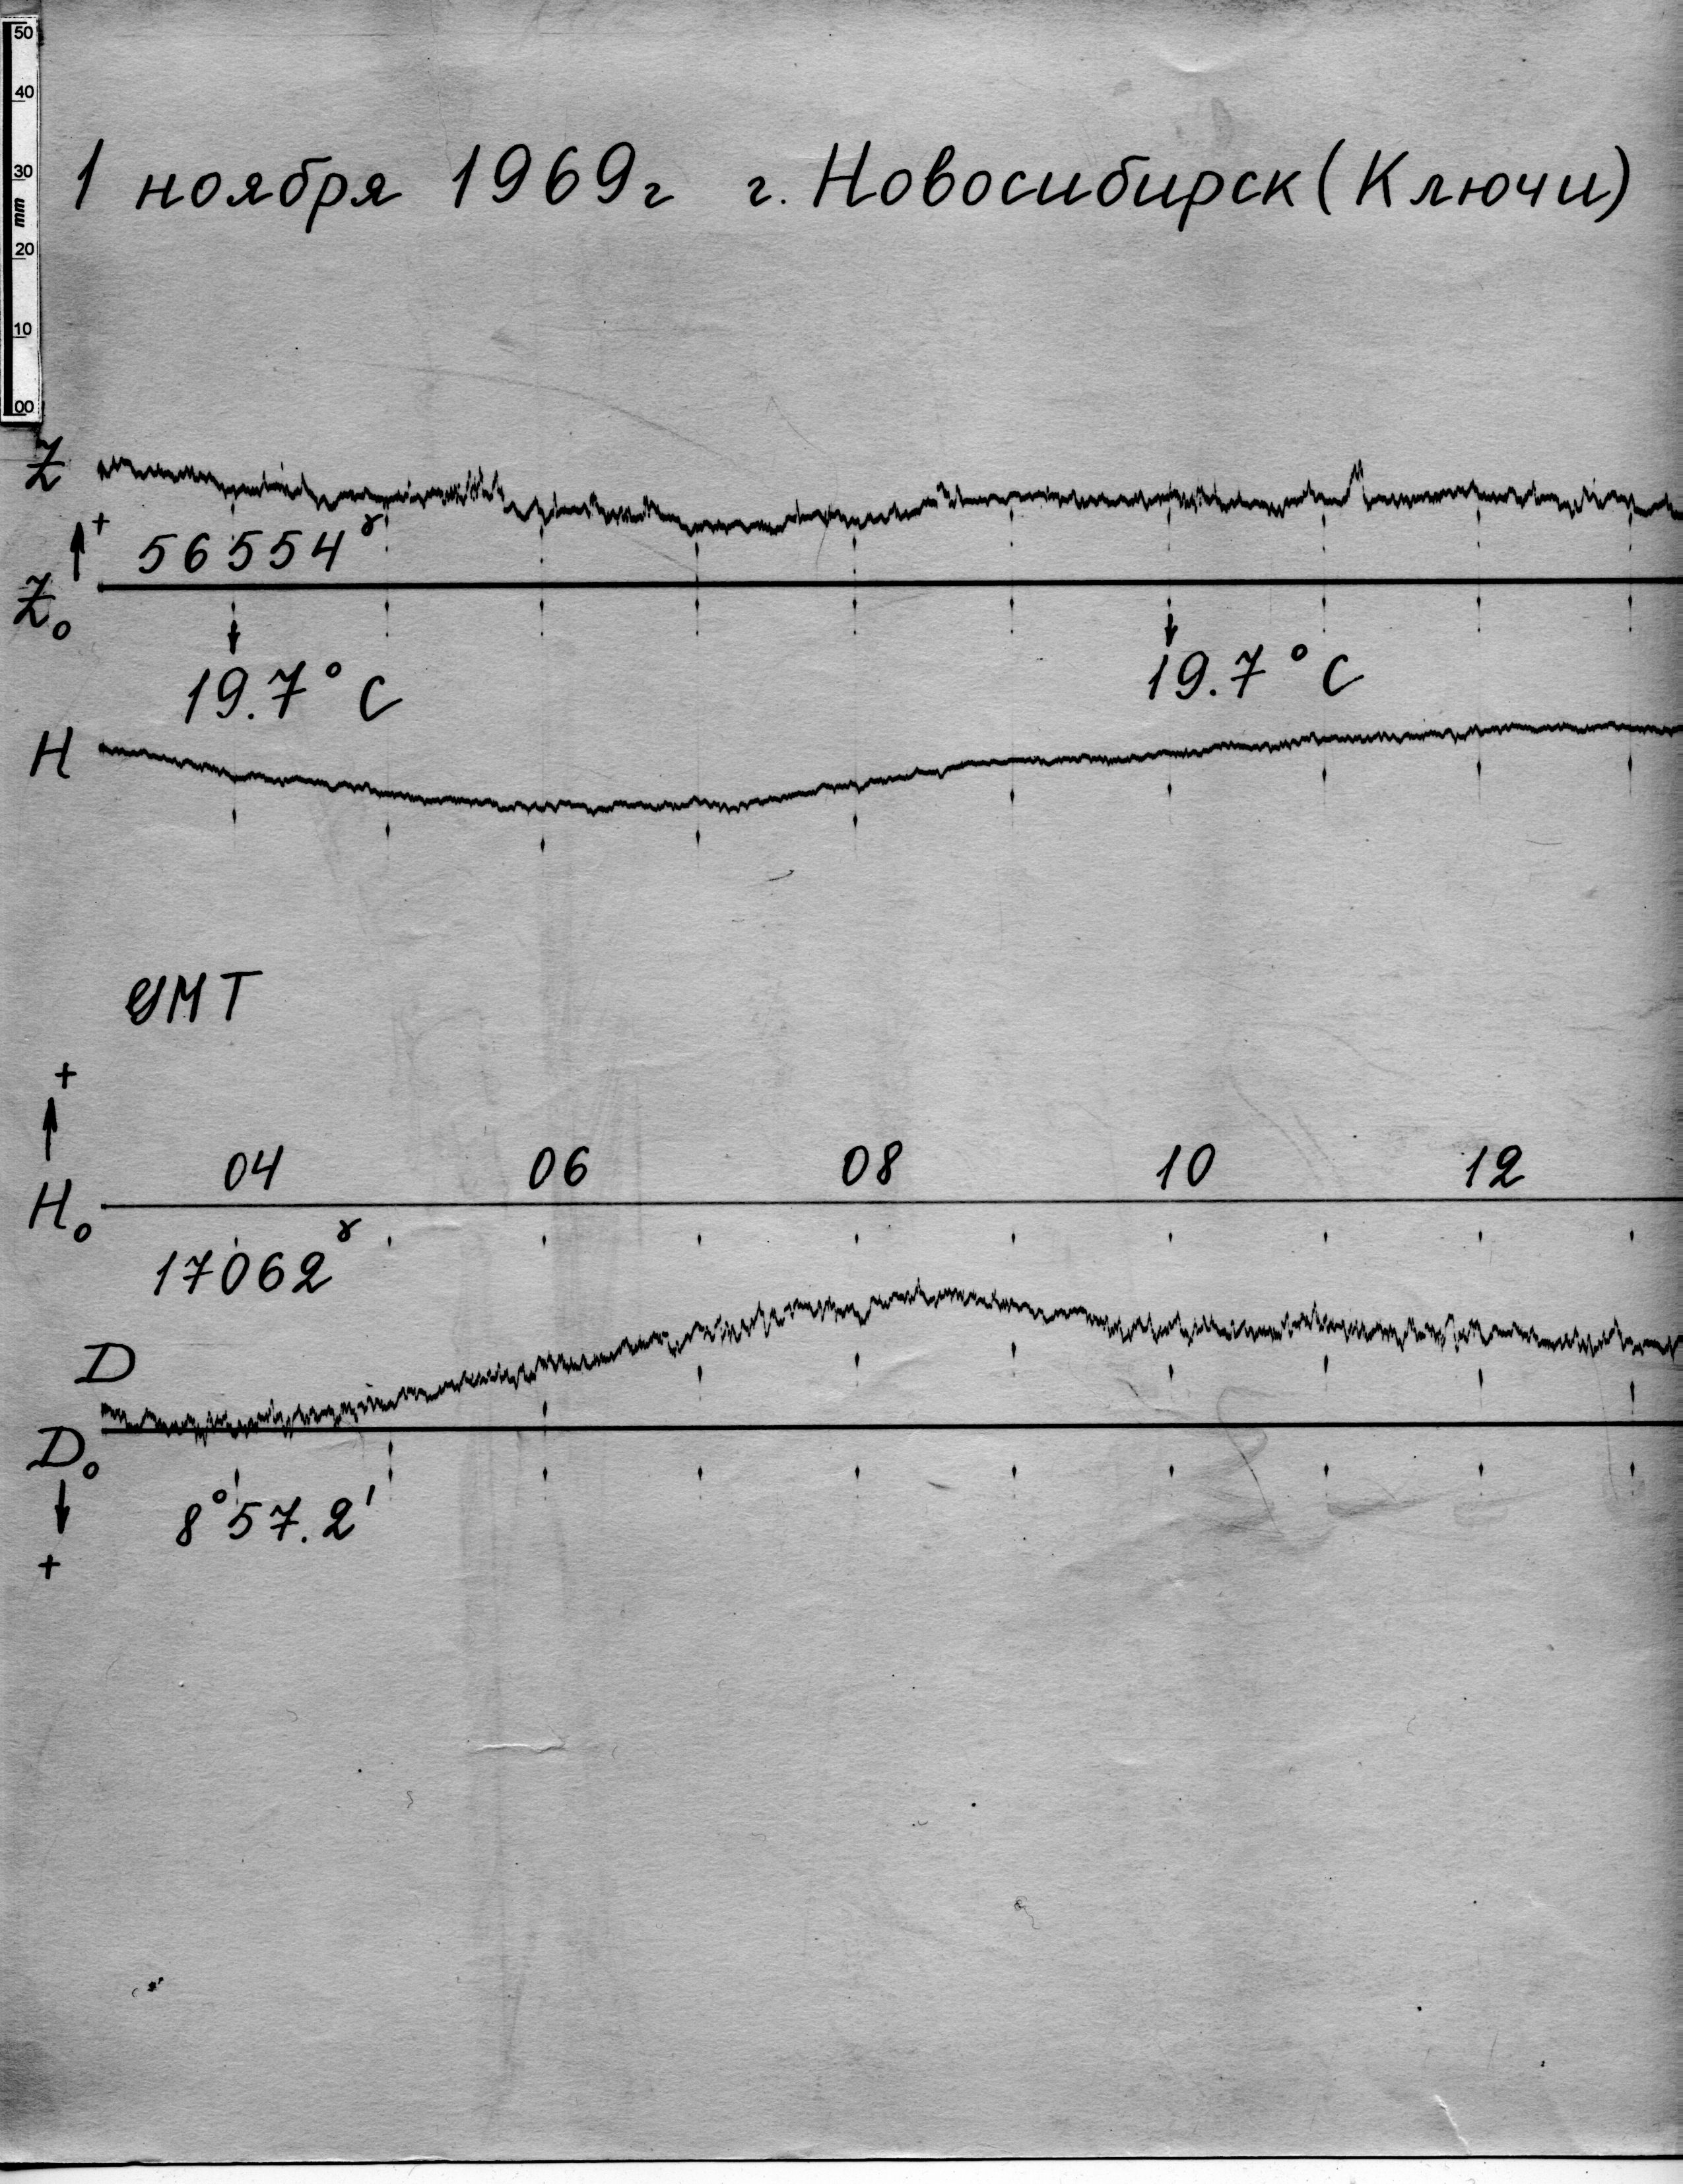 50
40
30
mm
20
10
00
1 ноября 1969г г. Новосибирск (Ключи)
Z
+
56554γ
Z₀
19.7°C 19.7°C
H
GMT
+
04 06 08 10 12
H₀
17062γ
D
D₀
8°57.2'
+